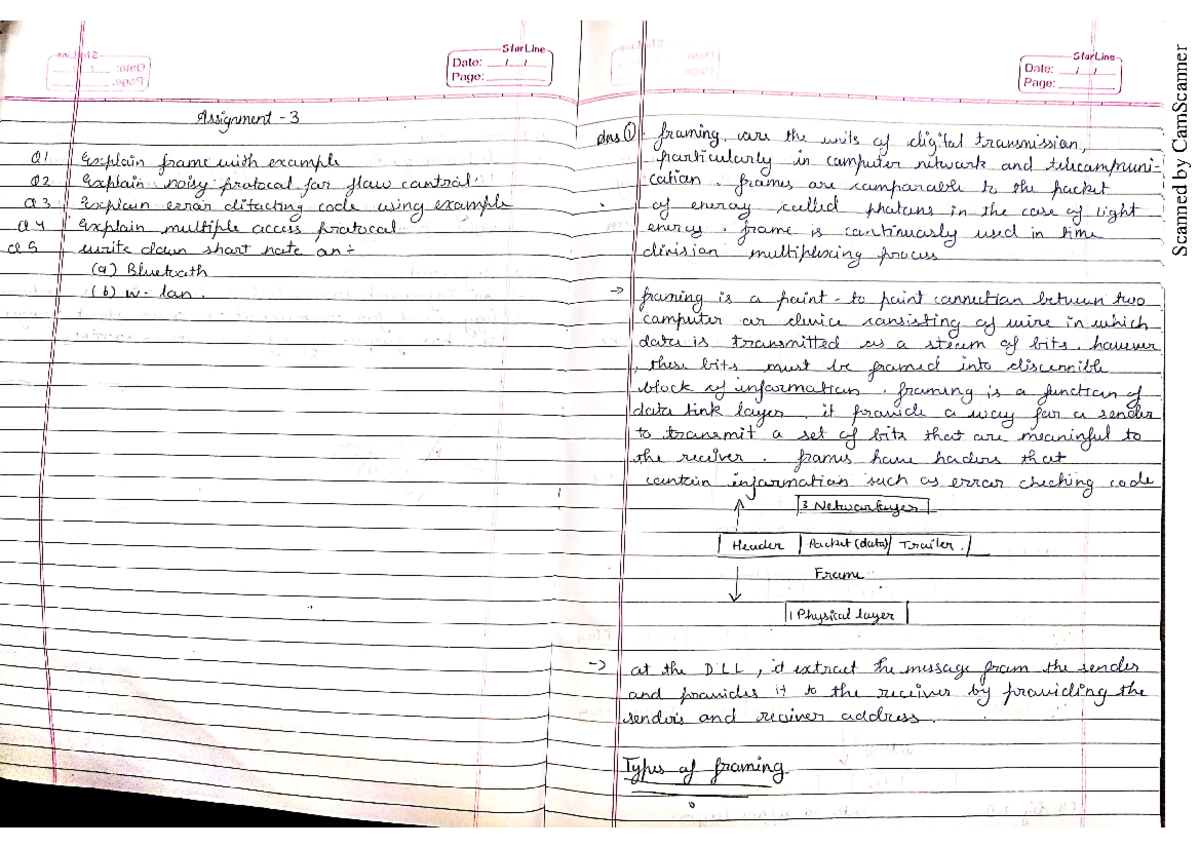 StarLine
Date: __/__/__
Page:
Assignment - 3
Q1 Explain frame with example
Q2 Explain noisy protocal for flow control.
Q3 Explain error ditacting code using example
Q4 Explain multiple access protocal
Q5 write down short note on ÷
(a) Bluetooth
(b) w- lan.
StarLine
Date: __/__/__
Page:
Ans ① framing are the units of digital transmission,
particularly in computer network and telecommuni-
cation. frames are comparable to the packet
of energy called photons in the case of light
energy. frame is continuously used in time
division multiplexing process
-> framing is a point - to point connection between two
computer or device consisting of wire in which
data is transmitted as a steam of bits. however
, these bits must be framed into discernible
block of information. framing is a function of
data link layer. it provide a way for a sender
to transmit a set of bits that are meaninful to
the receiver. frames have haders that
contain information such as error checking code
3 Networklayer
Header Packet (data) Trailer.
Frame
1 Physical layer
-> at the DLL, it extract the message from the sender
and provides it to the receiver by providing the
sender's and reciver address.
Types of framing
Scanned by CamScanner